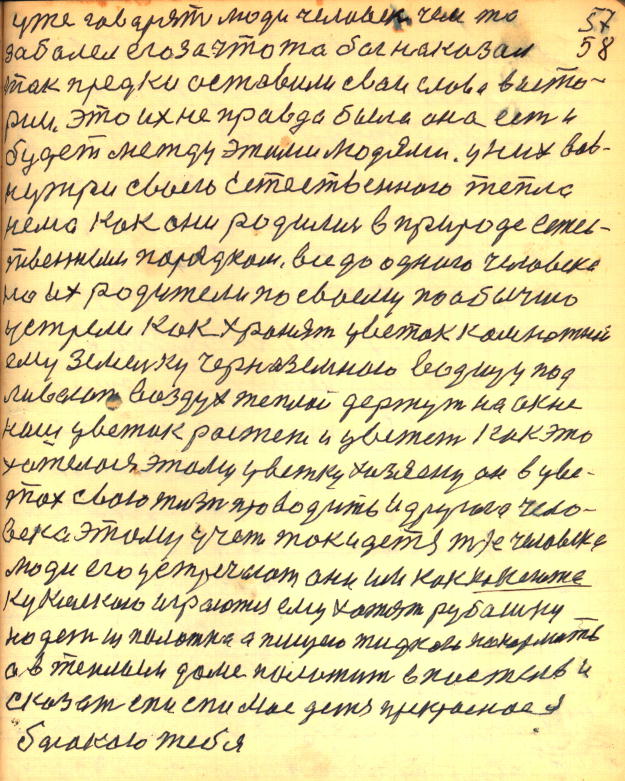 уже говарят люди человек чем то 57
заболел егозачтота богнаказал 58
так предки оставили сваи слова висто-
рии. это ихне правда была она ест и
будет между этими людями. у них вов-
нутри своего естественного тепла
нема как они родилися в природе естес-
твенным порядком. все до одного человека
на их родители по своему пообычаю
устрели как хранят цветок комнотний
ему земелку черназемною водицу под
ливают воздух теплой держут на окне
наш цветок растет и цветет как это
хателося этому цветку хазяену он в цве-
тах свою жизн проводить и другога чело-
века этому учет токи детя тже человека
люди его устречают они им как
куколкою играются ему хотят рубашку
надет из полотна а пищею жидкою накормить
а в теплом доме положит в постель и
сказат спи спи мое детя прекрасное я
баюкаю тебя